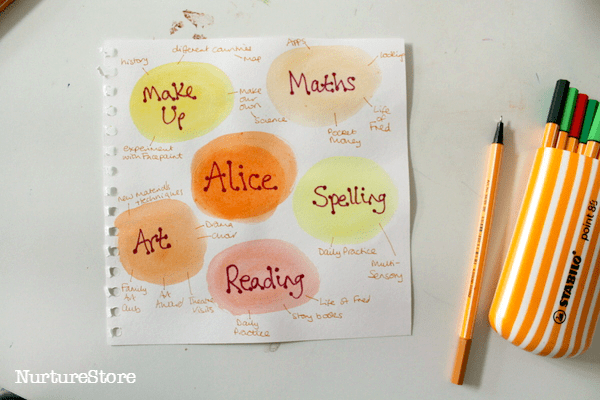 history
different countries
map
Make
Up
Make
our
own
Science
Experiment
with Facepaint
Apps
cooking
Maths
Life
of
Fred
Pocket
Money
Alice
Spelling
Daily Practice
Multi-
Sensory
New Materials
techniques
Art
Drama
Family
Art
Club
Art
Award
Reading
Life of Fred
Story books
Daily
Practice
STABILO
point 88
NurtureStore